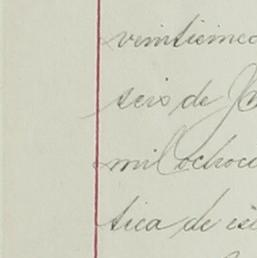 veinticinco
seis de
mil ochoc
tica de es